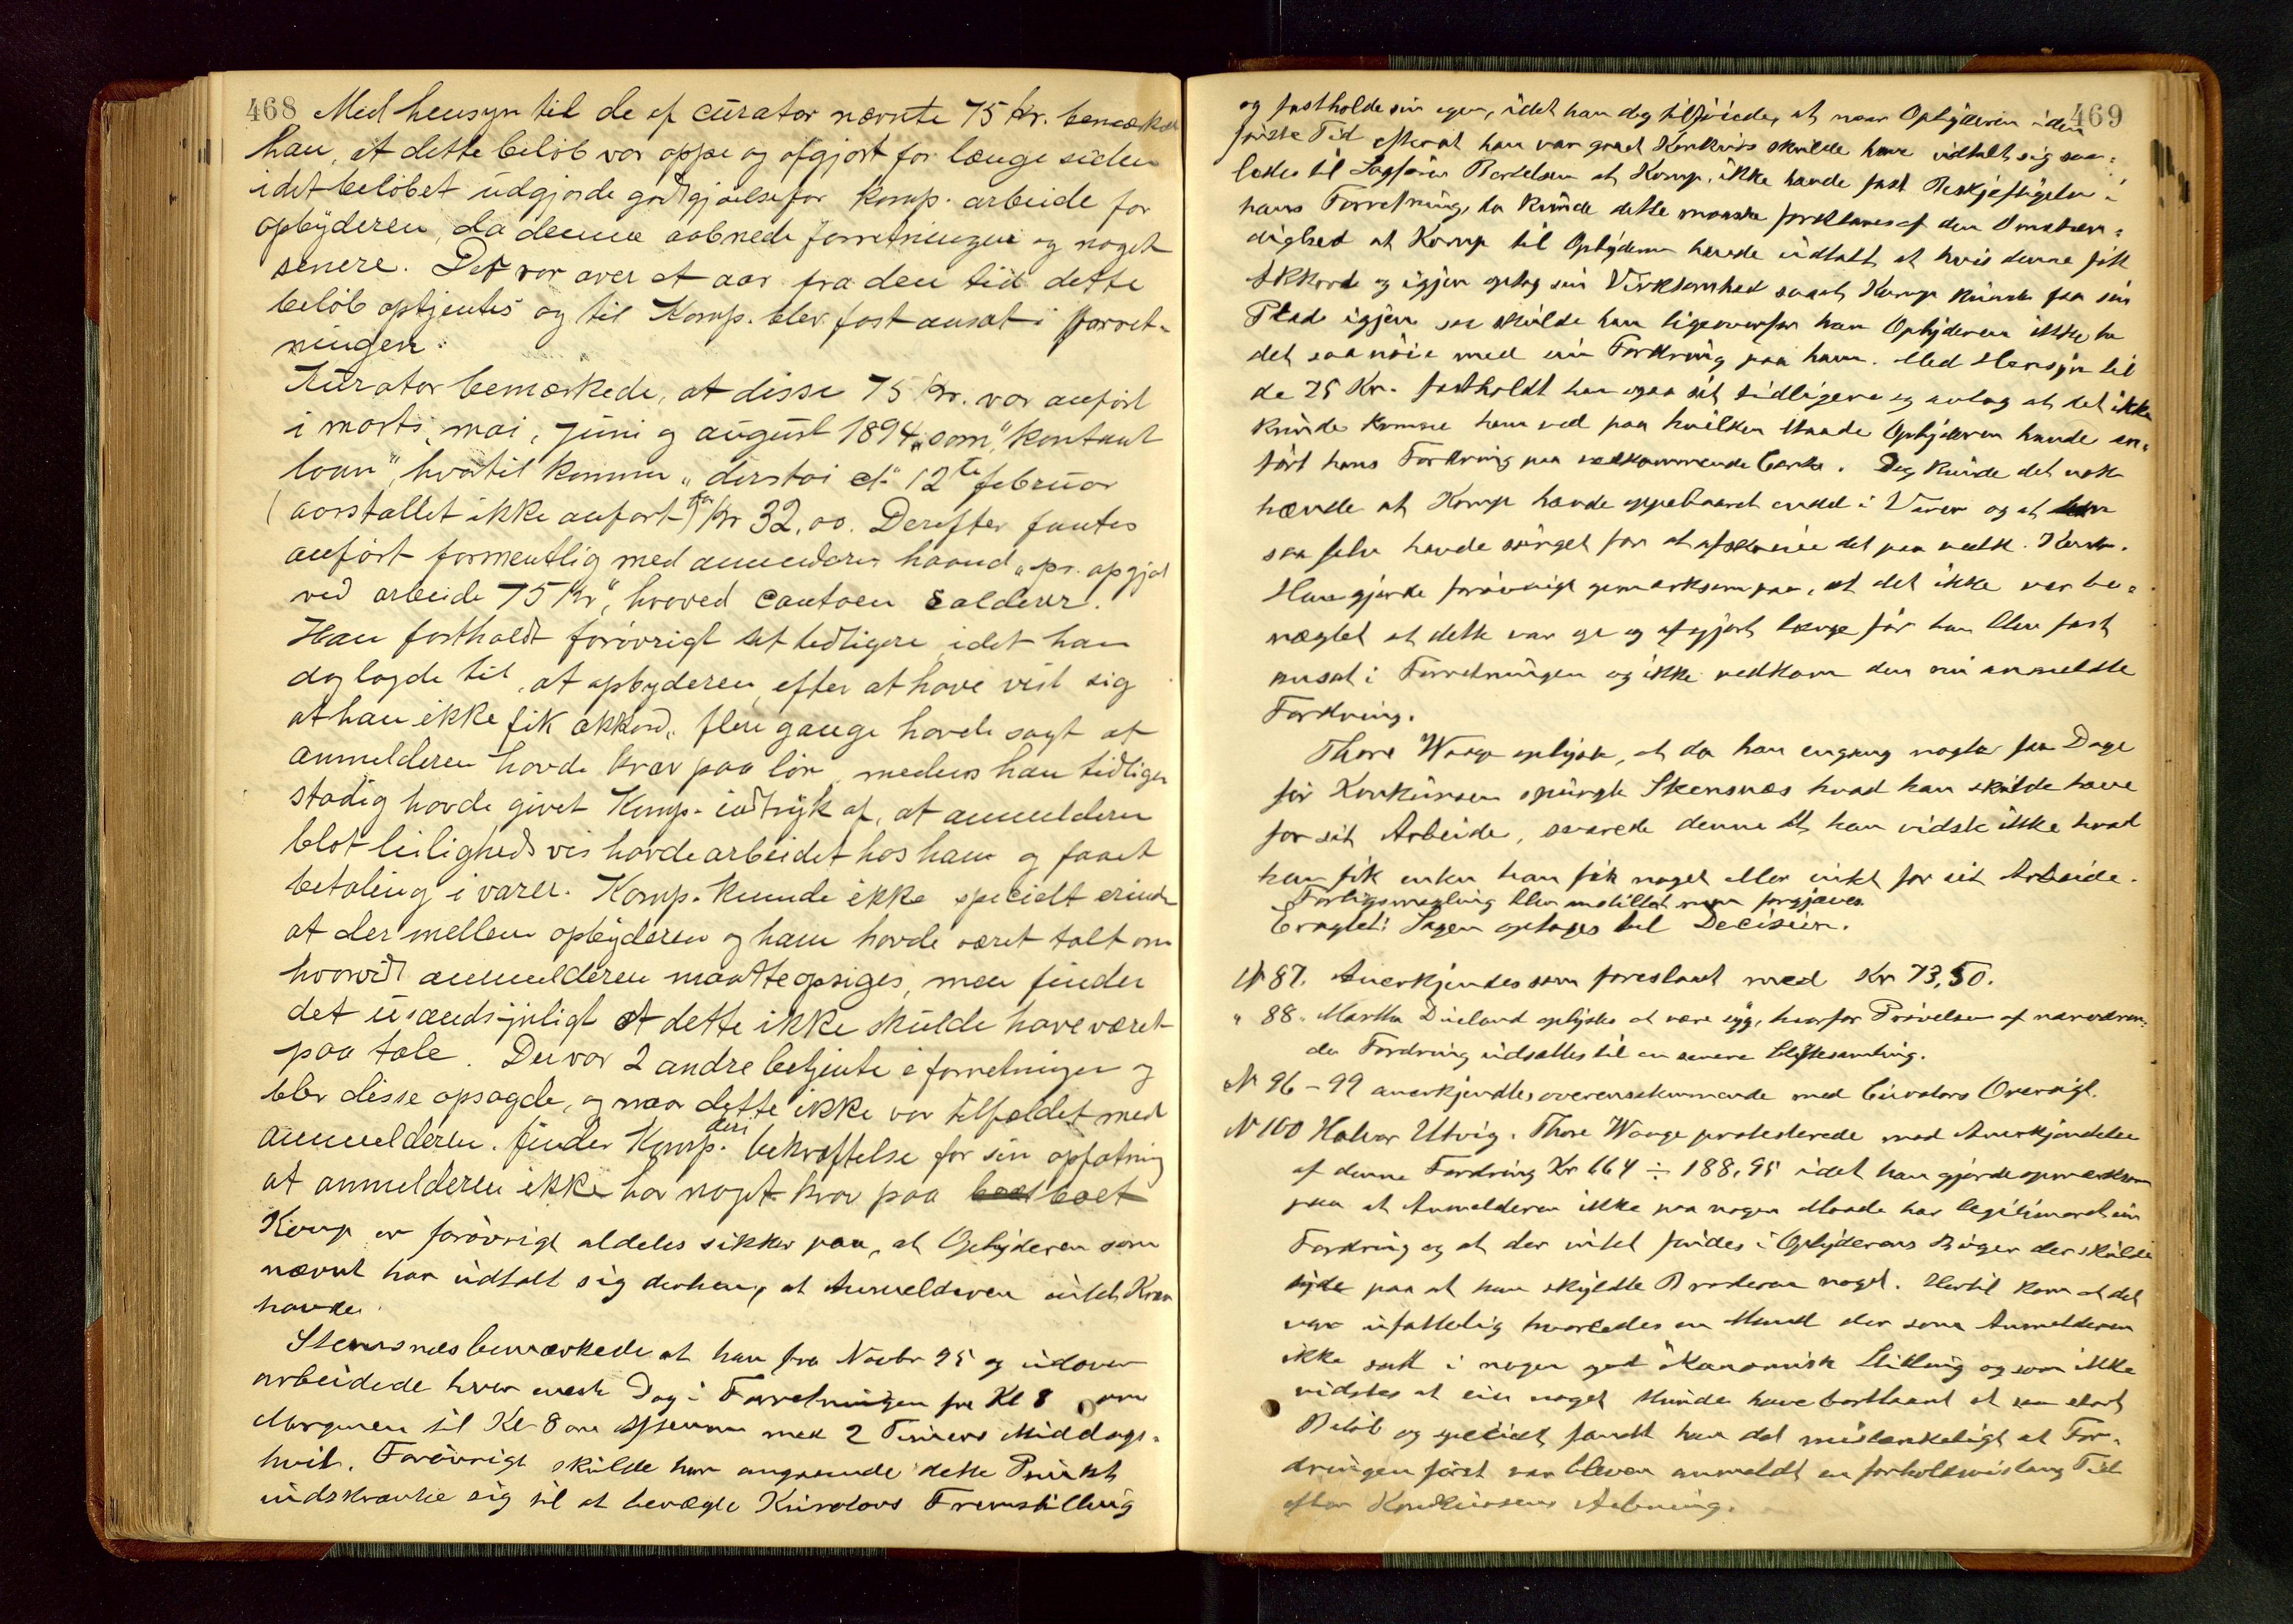 468 Med hensyn til de af curator nævnte 75 kr. bemærket
han, at dette beløb var oppe og afgjort for længe siden
idet beløbet udgjorde godtgjørelse for komp. arbeide for
opbyderen, da denne aabnede forretningen og noget
senere. Det var over et aar fra den tid dette
beløb optjentes og til Komp. blev fast ansat i forret-
ningen.
Kurator bemærkede, at disse 75 kr. var anført
i marts, mai, juni og august 1894 som "kontant
laan", hvortil kommer "dertoi et" 12te februar
(aarstallet ikke anført) for kr 32,00. Derefter fantes
anført formentlig med anmelderens haand "pr. opgjør
ved arbeide 75 kr", hvoved contoen salderer.
Han fastholdt forøvrigt sit tidligere idet han
dog lagde til, at opbyderen, efter at have vist sig
at han ikke fik akkord, flere gange havde sagt at
anmelderen havde krav paa løn, medens han tidligere
stadig havde givet Komp. indtryk af, at anmelderen
blot leilighedsvis havde arbeidet hos ham og faaet
betaling i varer. Komp. kunde ikke specielt erindre
at der mellem opbyderen og ham havde været talt om
hvorvidt anmelderen maatte opsiges, men finder
det usandsynligt at dette ikke skulde have været
paa tale. Der var 2 andre betjente i forretningen og
blev disse opsagde, og naar dette ikke var tilfældet med
anmelderen. finder Komp. deri bekræftelse for sin opfatning
at anmelderen ikke har noget krav paa boet
Komp er forøvrigt aldeles sikker paa, at Opbyderen som
nævnt har udtalt sig derhen, at Anmelderen intet Krav
havde.
Stensnæs bemærkede at han fra Novbr 95 og udover
arbeidede hver eneste Dag i Forretningen fra Kl 8 om
Morgenen til Kl 8 om Aftenen med 2 Timers Middags-
hvil. Forøvrigt skulde han angaaende dette Punkt
indskrænke sig til at benægte Kurators Fremstilling
469
og fastholde sin egen, idet han dog tilføiede, at naar Opbyderen i den
første Tid efterat han var gaaet Konkurs skulde have udtalt sig saa-
ledes til Sagfører Bertelsen at Komp. ikke havde fast Beskjeftigelse i
hans Forretning, da kunde dette maaske forklares af den Omstæn-
dighed at Komp til Opbyderen havde udtalt at hvis denne fik
Akkord og igjen optog sin Virksomhed saaat Komp kunde faa sin
Plads igjen saa skulde han ligeoverfor ham Opbyderen ikke ta
det saa nøie med sin Fordring paa ham. Med Hensyn til
de 75 Kr. fastholdt han ogsaa sit tidligere og antog at det ikke
kunde komme ham ved paa hvilken Maade Opbyderen havde an-
ført hans Fordring paa vedkommende Conto. Dog kunde det nok
hænde at Komp havde oppebaaret endel i Varer og at han
saa selv havde sørget for at afskrive det paa vedk. Konto.
Han gjorde forøvrigt opmærksom paa, at det ikke var be-
nægtet at dette var op og afgjort længe før han blev fast
ansat i Forretningen og ikke vedkom den nu anmeldte
Fordring.
Thore Waage oplyste, at da han engang nogle faa Dage
før Konkursen spurgte Stensnæs hvad han skulde have
for sit Arbeide, svarede denne at han vidste ikke hvad
han fik enten han fik noget eller intet for sit Arbeide.
Forligsmægling blev indstillet men forgjæves.
Eragtet: Sagen optages til Decision.
N 87. Anerkjendes som foreslaaet med Kr 73,50.
" 88. Martha Dueland oplystes at være syg, hvorfor Prøvelsen af nærværen-
de Fordring udsættes til en senere Skiftesamling.
N 96 - 99 anerkjendtes overensstemmende med Curators Oversigt.
N 100 Halvor Utvig. Thore Waage protesterede mod Anerkjendelse
af denne Fordring Kr 664 ÷ 188,95 idet han gjorde opmærksom
paa at Anmelderen ikke paa nogen Maade har legitimeret sin
Fordring og at der intet findes i Opbyderens Bøger der skulde
tyde paa at han skyldte Broderen noget. Hertil kom at det
var ufattelig hvorledes en Mand der som Anmelderen
ikke satt i nogen god økonomisk Stilling og som ikke
vidstes at eie noget kunde have bortlaant et saa stort
Beløb og specielt fandt han det mistænkeligt at For-
dringen først var bleven anmeldt en forholdsvis lang Tid
efter Konkursens Aabning.